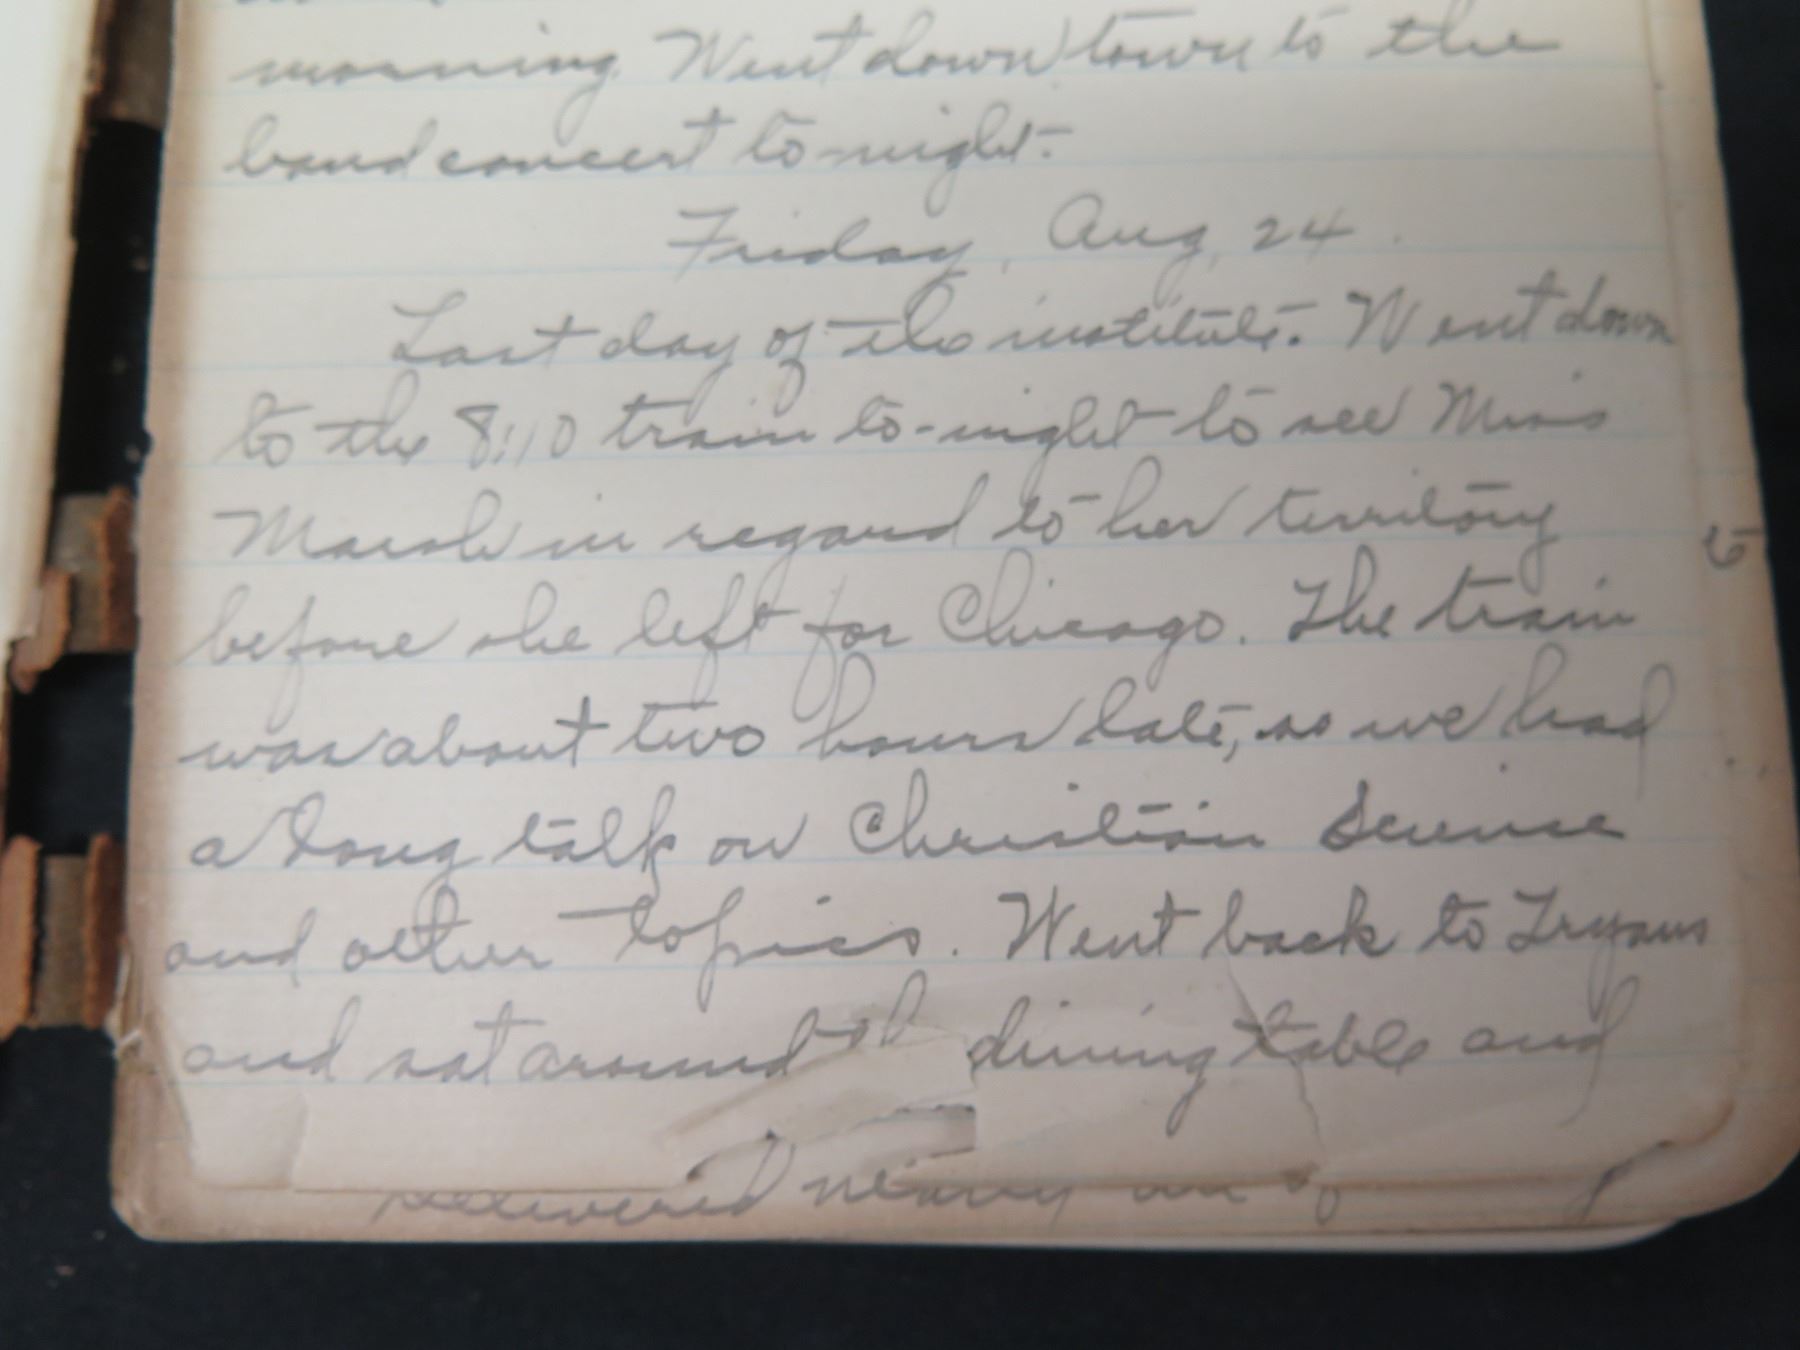 morning. Went down town to the
band concert to-night.
Friday, Aug, 24.
Last day of the institute. Went down
to the 8:10 train to-night to see Miss
Marsh in regard to her territory
before she left for Chicago. The train
was about two hours late, so we had
a long talk on Christian Science
and other topics. Went back to Tryans
and sat around th dining table and
delivered nearly all of
to